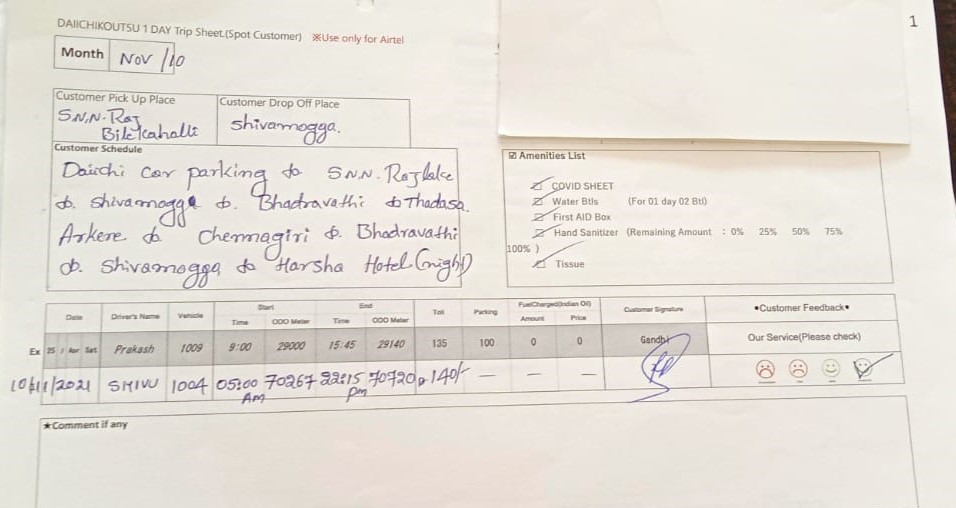 1
DAIICHIKOUTSU 1 DAY Trip Sheet.(Spot Customer) ※Use only for Airtel
Month Nov /10
Customer Pick Up Place Customer Drop Off Place
S.N.N. Raj Shivamogga.
Bilekahalli
Customer Schedule
Daiichi car parking to S.N.N. Raj lake
to. Shivamogga to. Bhadravathi to Thadasa.
Arkere to Chennagiri to. Bhadravathi
to. Shivamogga to Harsha Hotel (night)
☑ Amenities List
☑ COVID SHEET
☑ Water Btls (For 01 day 02 Btl)
☑ First AID Box
☑ Hand Sanitizer (Remaining Amount : 0% 25% 50% 75%
100% )
☑ Tissue
Start End FuelCharged(Indian Oil)
Date Driver's Name Vehicle Time ODO Meter Time ODO Meter Toll Parking Amount Price Customer Signature •Customer Feedback•
Ex 25 / Apr Sat Prakash 1009 9:00 29000 15:45 29140 135 100 0 0 Gandhi Our Service(Please check)
10/11/2021 SHIVU 1004 05:00 Am 70267 22:15 pm 70720 140/- — — —
★Comment if any